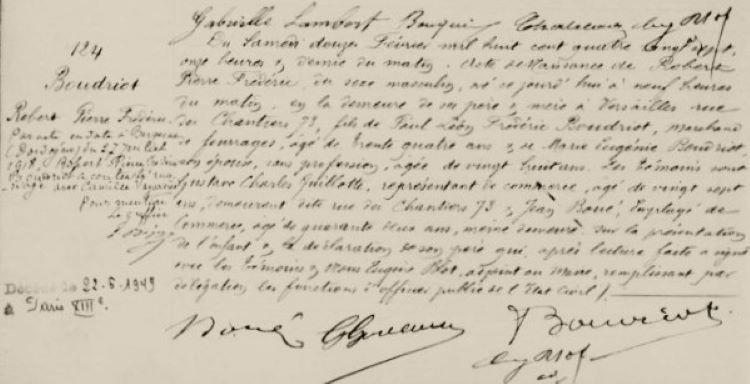 Gabrielle Lambert
124
Boudriot
Robert Pierre Frédéric
Par acte en date à Bergerac
(Dordogne) du 27 Juillet
1918, Robert Pierre Frédéric
Boudriot a contracté mariage
avec Camille
Pour mention
Le greffier
Décédé le 22-6-1949
à Paris XIIIe
Du Samedi douze Février mil huit cent quatre vingt sept,
onze heures & demie du matin. Acte de Naissance de Robert
Pierre Frédéric, du sexe masculin, né ce jourd'hui à neuf heures
du matin, en la demeure de ses père & mère à Versailles rue
des Chantiers 73, fils de Paul Léon Frédéric Boudriot, marchand
de fourrages, âgé de trente quatre ans & de Marie Eugénie
son épouse, sans profession, âgée de vingt huit ans. Les témoins sont
Gustave Charles Juillotte, représentant de commerce, âgé de vingt sept
ans, demeurant dite rue des Chantiers 73 & Jean Boué, Employé de
Commerce, âgé de quarante deux ans, même demeure. Sur la présentation
de l'enfant & la déclaration de son père qui, après lecture faite a signé
avec les témoins & Nous Eugène, adjoint au Maire, remplissant par
délégation les fonctions d'officier public de l'Etat Civil /.
Boué
Boudriot